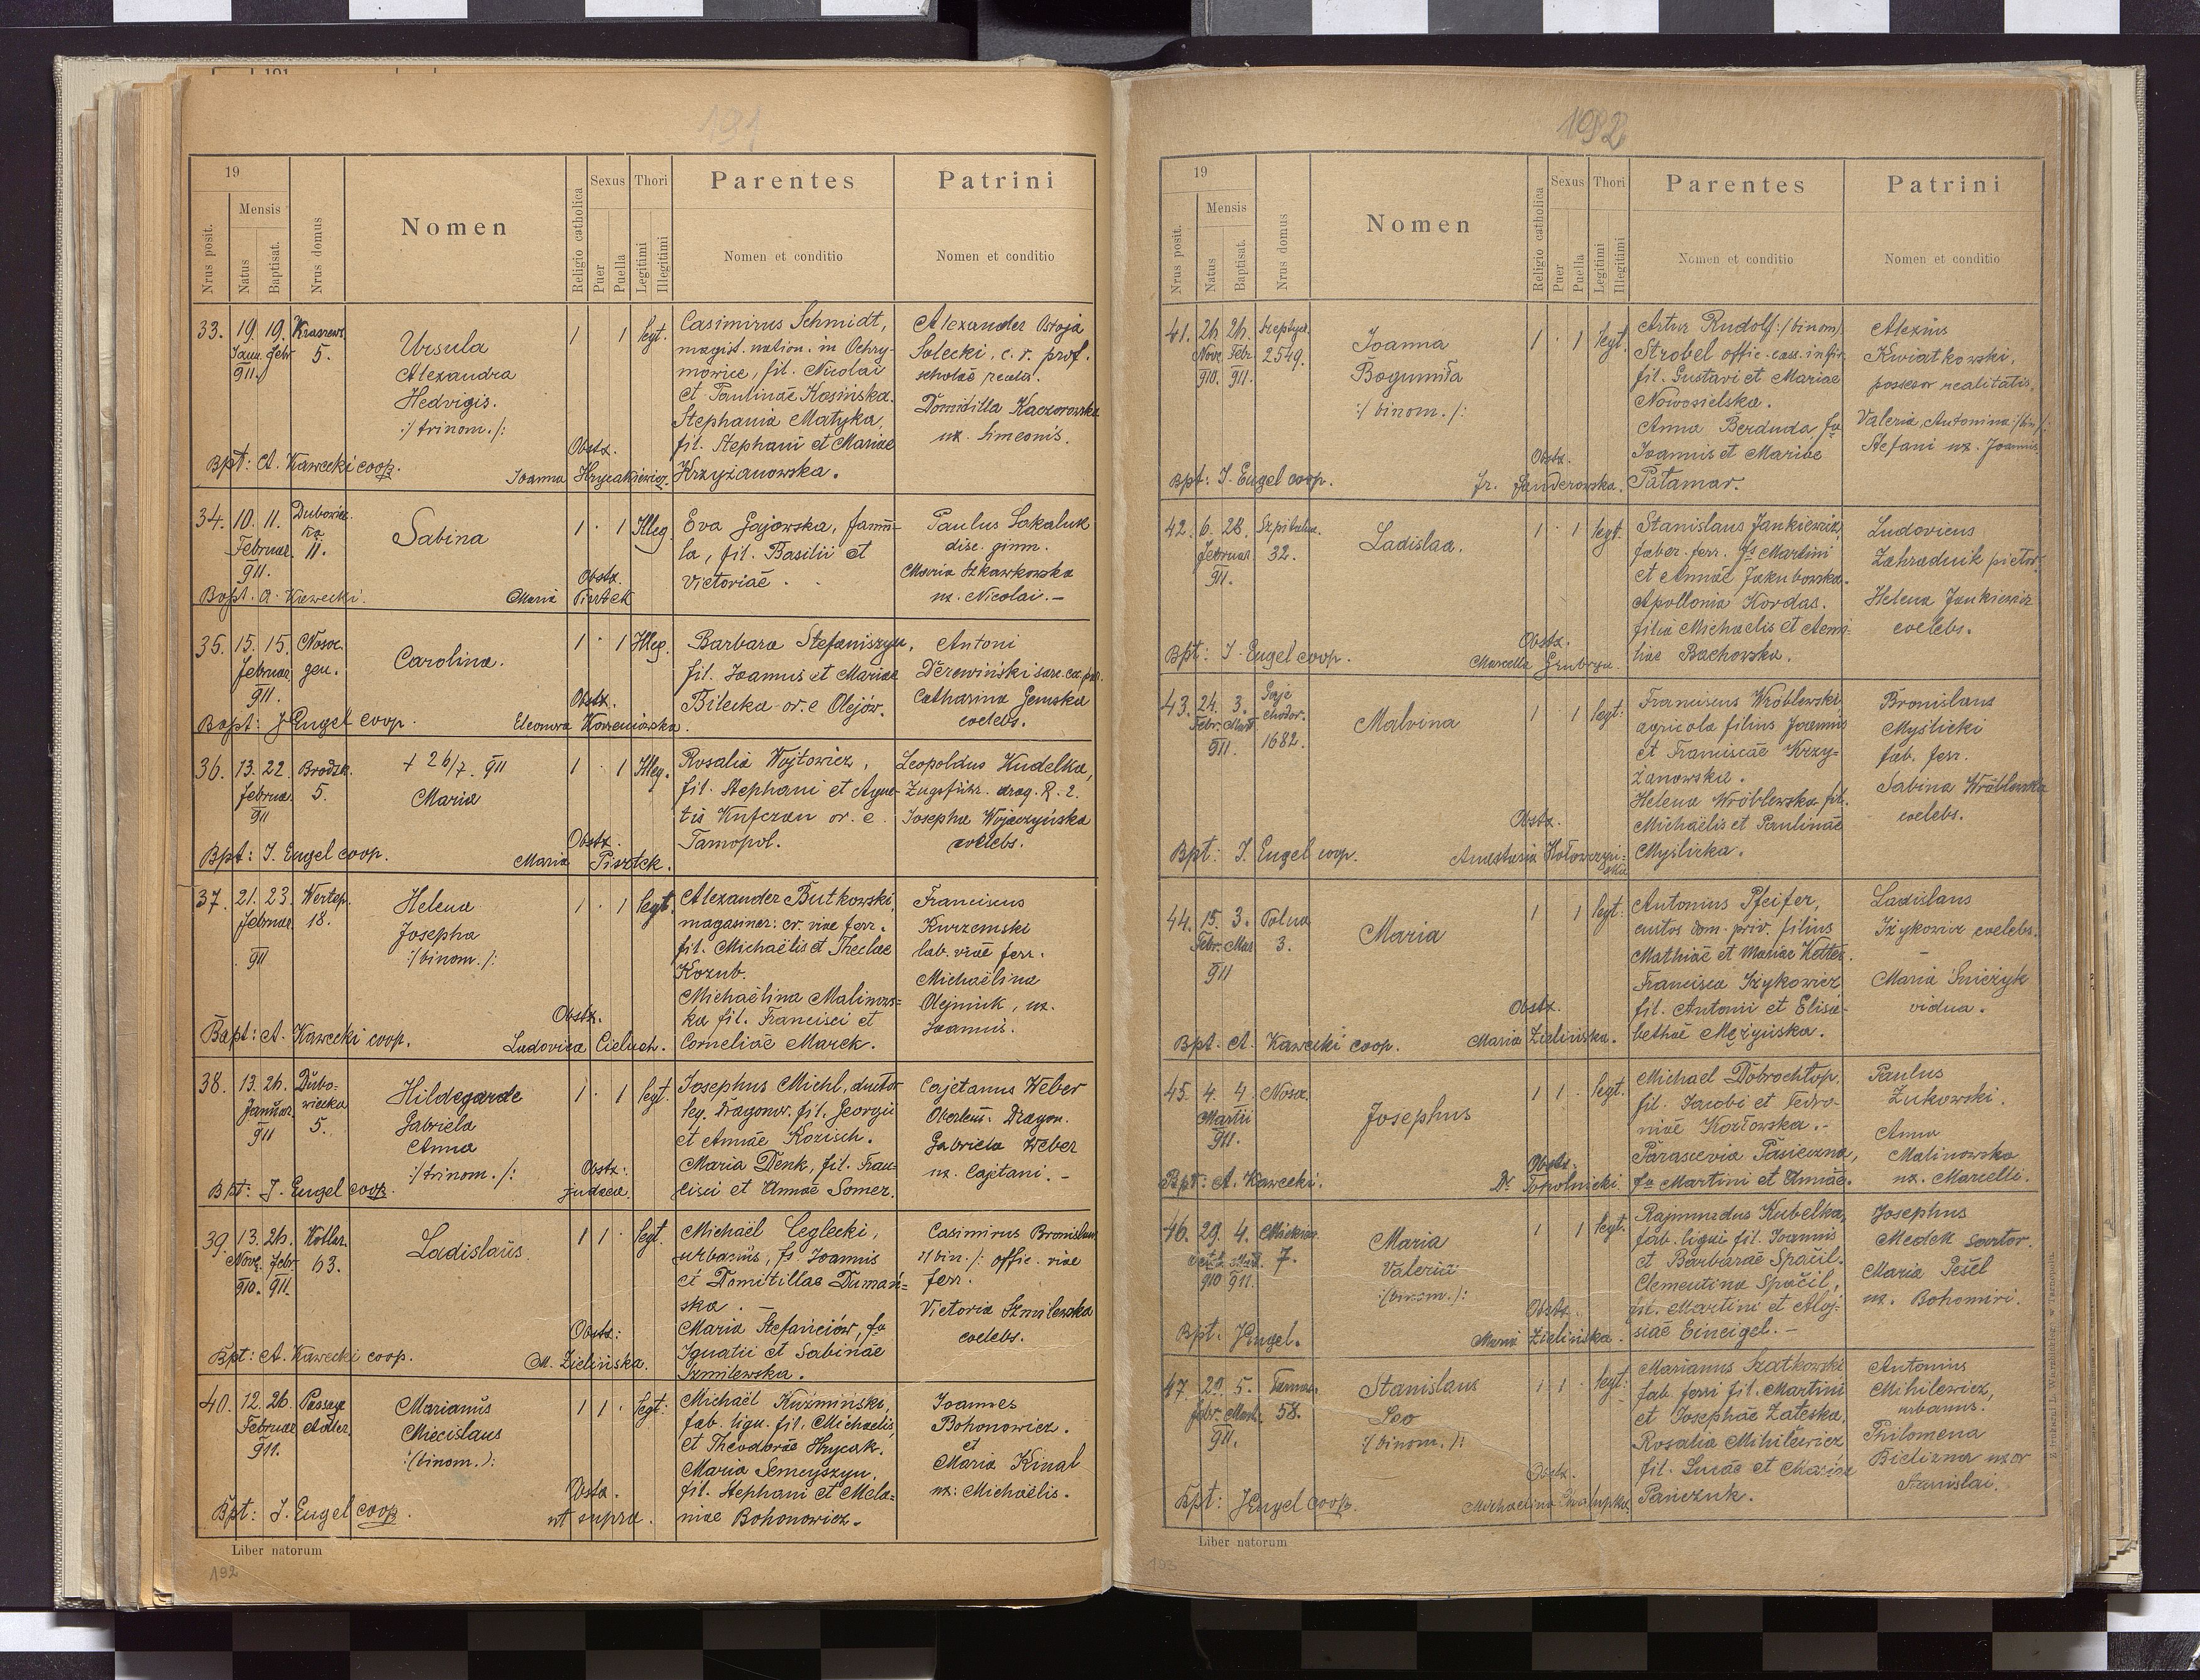 191
19
Nrus posit.
Mensis
Natus
Baptisat.
Nrus domus
Nomen
Religio catholica
Sexus
Puer
Puella
Thori
Legitimi
Illegitimi
Parentes
Nomen et conditio
Patrini
Nomen et conditio
33. 19. 19.
Jan. Febr.
911.
5.
Ursula
Alexandra
Hedvigis.
:/trinom./:
1 1 legt.
Casimirus Schmidt,
magist. nation. in Ochry-
mowce, fil. Nicolai
et Paulinae Kosińska.
Stephania Matyka,
fil. Stephani et Mariae
Krzyżanowska.
Alexander Ostoja
Solecki, c. r. prof.
scholae realis.
Domidilla Kaczorowska
ux. Simeonis.
Bpt: A. Kawecki coop.
Obstx.
Joanna Hrycakiewicz.
34. 10. 11.
Februar.
911.
11.
Sabina
1 · 1 Illeg.
Eva Gajowska, famm-
la, fil. Basilii et
Victoriae.
Paulus Sokaluk
disc. gimn.
Maria Szkawkowska
ux. Nicolai.-
Bapt. A. Kawecki.
Obstx.
Maria Piontek
35. 15. 15.
Februar
911.
Carolina.
1 · 1 Illeg.
Barbara Stefaniszyn,
fil. Joannis et Mariae
Bilecka or. e Olejów.
Antoni
Derewiński
Catharina Gemska
coelebs.
Bapt: J. Engel coop.
Obstx.
Eleonora
36. 13. 22.
Februar
911
Brodzk.
5.
+ 26/7. 911
Maria
1 · 1 Illeg.
Rosalia Wojtowicz,
fil. Stephani et Agne-
tis or. e
Tarnopol.
Leopoldus Kudelka,
Zugsführ. drag. R. 2.
Josepha Wojaczyńska
coelebs.
Bpt: J. Engel coop.
Obstx.
Maria Piontek.
37. 21. 23.
Februar
911
Wertep.
18.
Helena
Josepha
:/binom./:
1 · 1 legt.
Alexander Butkowski,
magasiner: cr. viae ferr.
fil. Michaëlis et Theclae
Kozub.
Michaëlina Malinows-
ka fil. Francisci et
Corneliae Marek.
Franciscus
Kurzemski
lab. viae ferr.
Michaëlina
Olejnik, ux.
Joannis.
Bapt: A. Kawecki coop.
Obstx.
Ludovica Cieluch.
38. 13. 26.
Januar
911
Dubo-
wiecka
5.
Hildegarde
Gabriela
Anna
:/trinom./:
1 · 1 legt.
Josephus Michl, ductor
leg. Dragonor. fil. Georgii
et Annae Kozisch.
Maria Denk, fil. Fran-
cisci et Annae Somer.
Cajetanus Weber
Oberleut. Dragon.
Gabriela Weber
ux. Cajetani.-
Bpt: J. Engel coop.
Obstx:
judaea.
39. 13. 26.
Nov. Febr.
910. 911.
Kotlar.
63.
Ladislaus.
1 1 · legt.
Michaël Ceglecki,
urbanus, fs. Joannis
et Domitillae Dumań-
ska.-
Maria Stefanciów, fa
Ignatii et Sabinae
Szmilewska.
Casimirus Bronislaus
:/bin./: offic. viae
ferr.
Victoria Szmilewska
coelebs.
Bpt: A. Kawecki coop.
Obstx:
M. Zielińska.
40. 12. 26.
Februar
911.
Passage
Adler.
Marianus
Miecislaus
:/binom./:
1 1 · legt:
Michaël Kuźmiński,
fab. lign. fil. Michaelis,
et Theodorae Hrycak.
Maria Semeyszyn,
fil. Stephani et Mela-
niae Bohonowicz.
Joannes
Bohonowicz.
et
Maria Kinal
ux: Michaëlis.
Bpt: J. Engel coop.
Obstx.
ut supra.
Liber natorum
192
192
19
Nrus posit.
Mensis
Natus
Baptisat.
Nrus domus
Nomen
Religio catholica
Sexus
Puer
Puella
Thori
Legitimi
Illegitimi
Parentes
Nomen et conditio
Patrini
Nomen et conditio
41. 26. 26.
Nov. Febr.
910. 911.
2549.
Joanna
Bogumiła
:/binom./:
1 · 1 legt.
Artur Rudolf:/binom/:
Strobel offic. cass. infir.
fil. Gustavi et Mariae
Nowosielska.
Anna Berduda fa
Joannis et Mariae
Patamar.
Alexius
Kwiatkowski,
possesor realitatis.
Valeria, Antonina:/bin/:
Stefani ux. Joannis.
Bpt: J. Engel coop.
Obstx.
Fr. Janderowska.
42. 6. 28.
Februar.
911.
Szpitalna.
32.
Ladislaa.
1 · 1 legt.
Stanislaus Jankiewicz,
faber ferr. fs Martini
et Annae Jakubowska.
Apollonia Kordas.
filia Michaelis et Aemi-
liae Bachowska.
Ludovicus
Zahradnik pictor.
Helena Jankiewicz
coelebs.
Bpt: J. Engel coop.
Obstx.
Marcella
43. 24. 3.
Febr. Mart.
911.
Gaje
chodor.
1682.
Malvina
1 · 1 legt:
Franciscus Wróblewski,
agricola filius Joannis
et Franciscae Krzy-
żanowska.
Helena Wróblewska fil.
Michaëlis et Paulinae
Myslicka.
Bronislaus
Myślicki
fab. ferr.
Sabina Wróblewska
coelebs.
Bpt: J. Engel coop.
Obstx.
Anastasia
44. 15. 3.
Febr. Mar
911
Polna
3.
Maria
1 1 legt:
Antonius Pfeifer,
custos dom. priv. filius
Mathiae et Mariae Ketter.
Francisca Iżykowicz
fil. Antonii et Elisa-
bethae Mężyńska.
Ladislaus
Iżykowicz coelebs.
Maria Śnieżyk
vidua.
Bpt. A. Kawecki coop.
Obstx.
Maria Zielińska.
45. 4. 4
Martii
911.
Josephus
1 1 · legt.
Michael Dobrochtop,
fil. Jacobi et Fedro-
niae Kozłowska.-
Parascevia Pasieczna,
fa Martini et Annae.
Paulus
Żukowski.
Anna
Malinowska
ux. Marcelli.
Bpt: A. Kawecki.
Obstx.
Dr. Topolnicki
46. 29. 4.
910 911.
Mickiew.
7.
Maria
Valeria
:/binom./:
1 1 legt.
Rajmundus Kubelka,
fab. ligni fil. Joannis
et Barbarae Spačil.
Clementina Spačil,
fil. Martini et Aloj-
siae Eineigel.-
Josephus
Medek sartor.
Maria Pešel
ux. Bohomiri.
Bpt. J. Engel.
Obstx.
Maria Zielińska.
47. 29. 5.
Febr. Mart.
911.
58.
Stanislaus
Leo
:/binom./:
1 1 · legt:
Marianus Szatkowski
fab. ferri fil. Martini
et Josephae Zaleska.
Rosalia Mihilewicz
fil. Lucae et Mariae
Pańczuk.
Antonius
Mihilewicz,
urbanus.
Philomena
Bielizna uxor
Stanislai.
Bpt: J. Engel coop.
Obstx.
Michaelina Chałupka.
Liber natorum
193